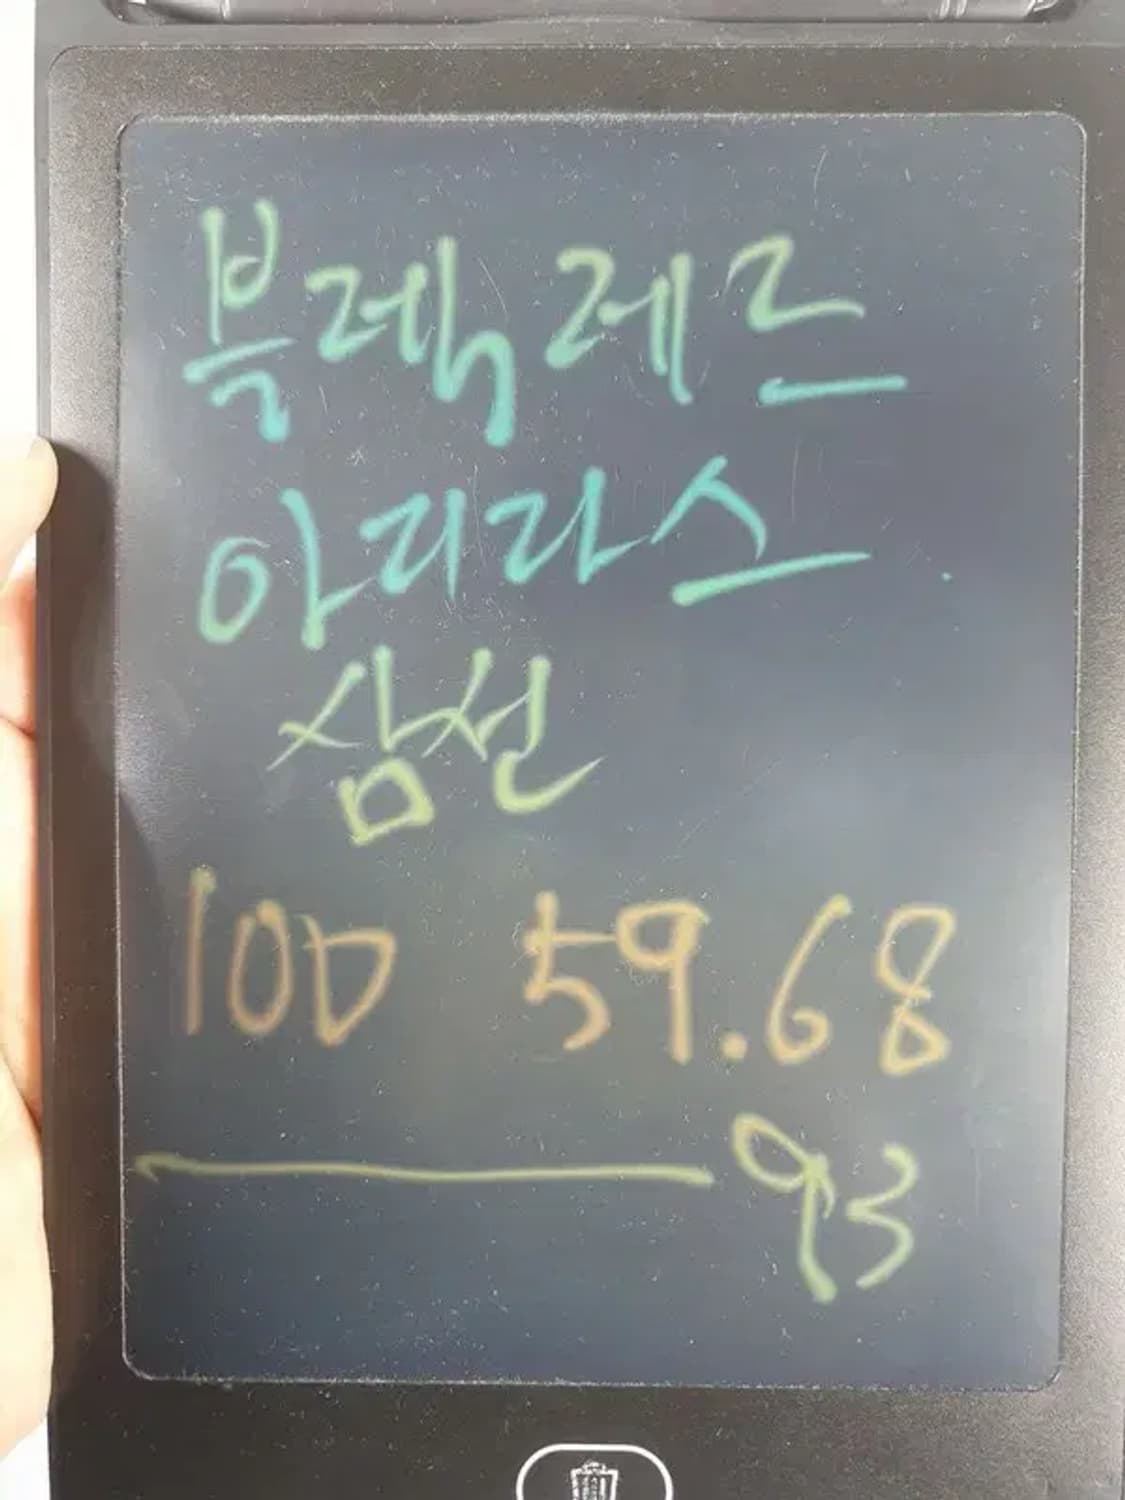 블렉레르
아리라스
삼선
100 59.68
93